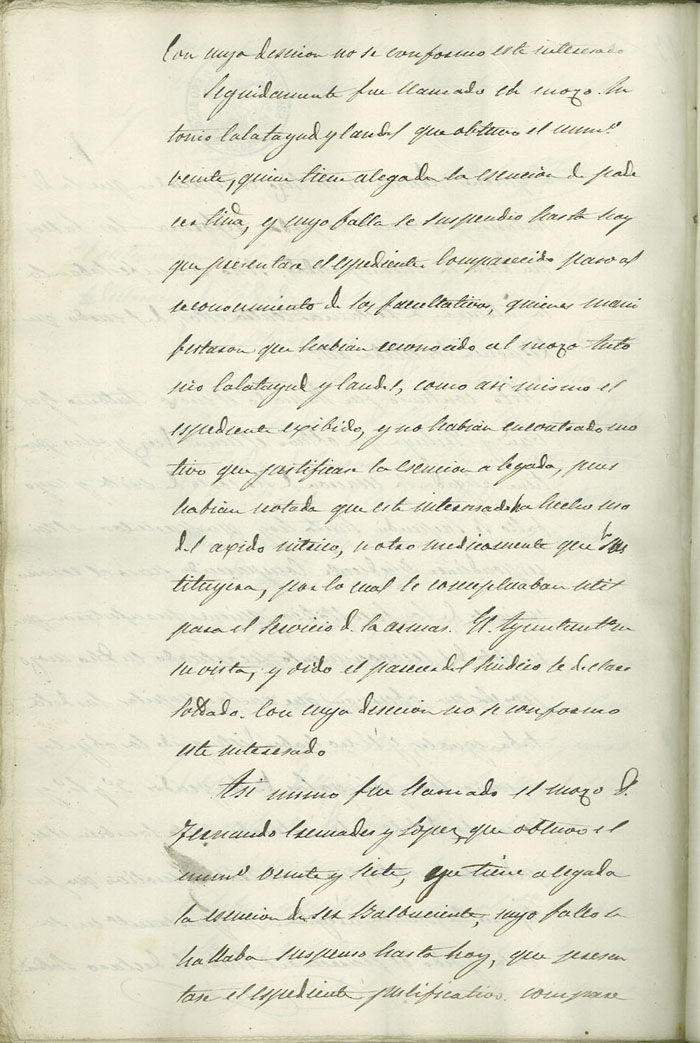 Con cuya desicion no se conformo este interesado
Seguidamente fue llamado el mozo An
tonio Calatayud y Candel que obtuvo el num.º
veinte, quien tiene alegada la esencion de pade
cer tiña, y cuyo fallo se suspendio hasta hoy
que presentase el espediente. Comparecido paso al
reconocimiento de los facultativos, quienes mani
festaron que habian reconocido al mozo Anto
nio Calatayud y Candel, como asi mismo el
espediente exibido, y no habian encontrado mo
tivo que justificase la esencion alegada, pues
habian notado que este interesado ha hecho uso
del acido nitrico, u otro medicamento que lo sus
tituyera, por lo cual le conceptuaban util
para el servicio de las armas. El Ayuntamto en
su vista, y oido el parecer del Sindico le declaro
Soldado. Con cuya desicion no se conformo
este interesado
Asi mismo fue llamado el mozo D.
Fernando Cremades y Lopez, que obtuvo el
num.º veinte y siete, que tiene alegada
la esencion de ser Balbuciente, cuyo fallo se
hallaba suspenso hasta hoy, que presen
tase el espediente justificativo. compare